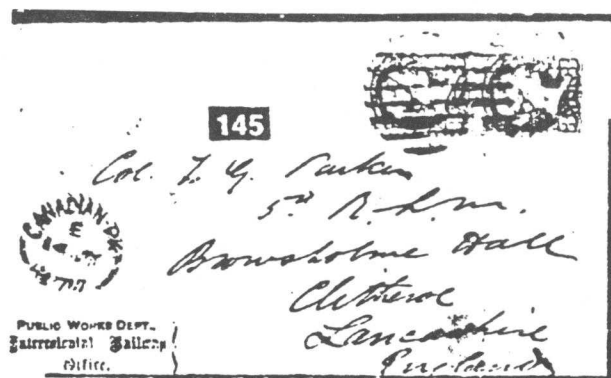 145
Col. T. G. Parker
5th R. L. M.
Browsholme Hall
Clitheroe
Lancashire
England
CANADIAN
PUBLIC WORKS DEPT.,
Intercolonial Railway
Office.